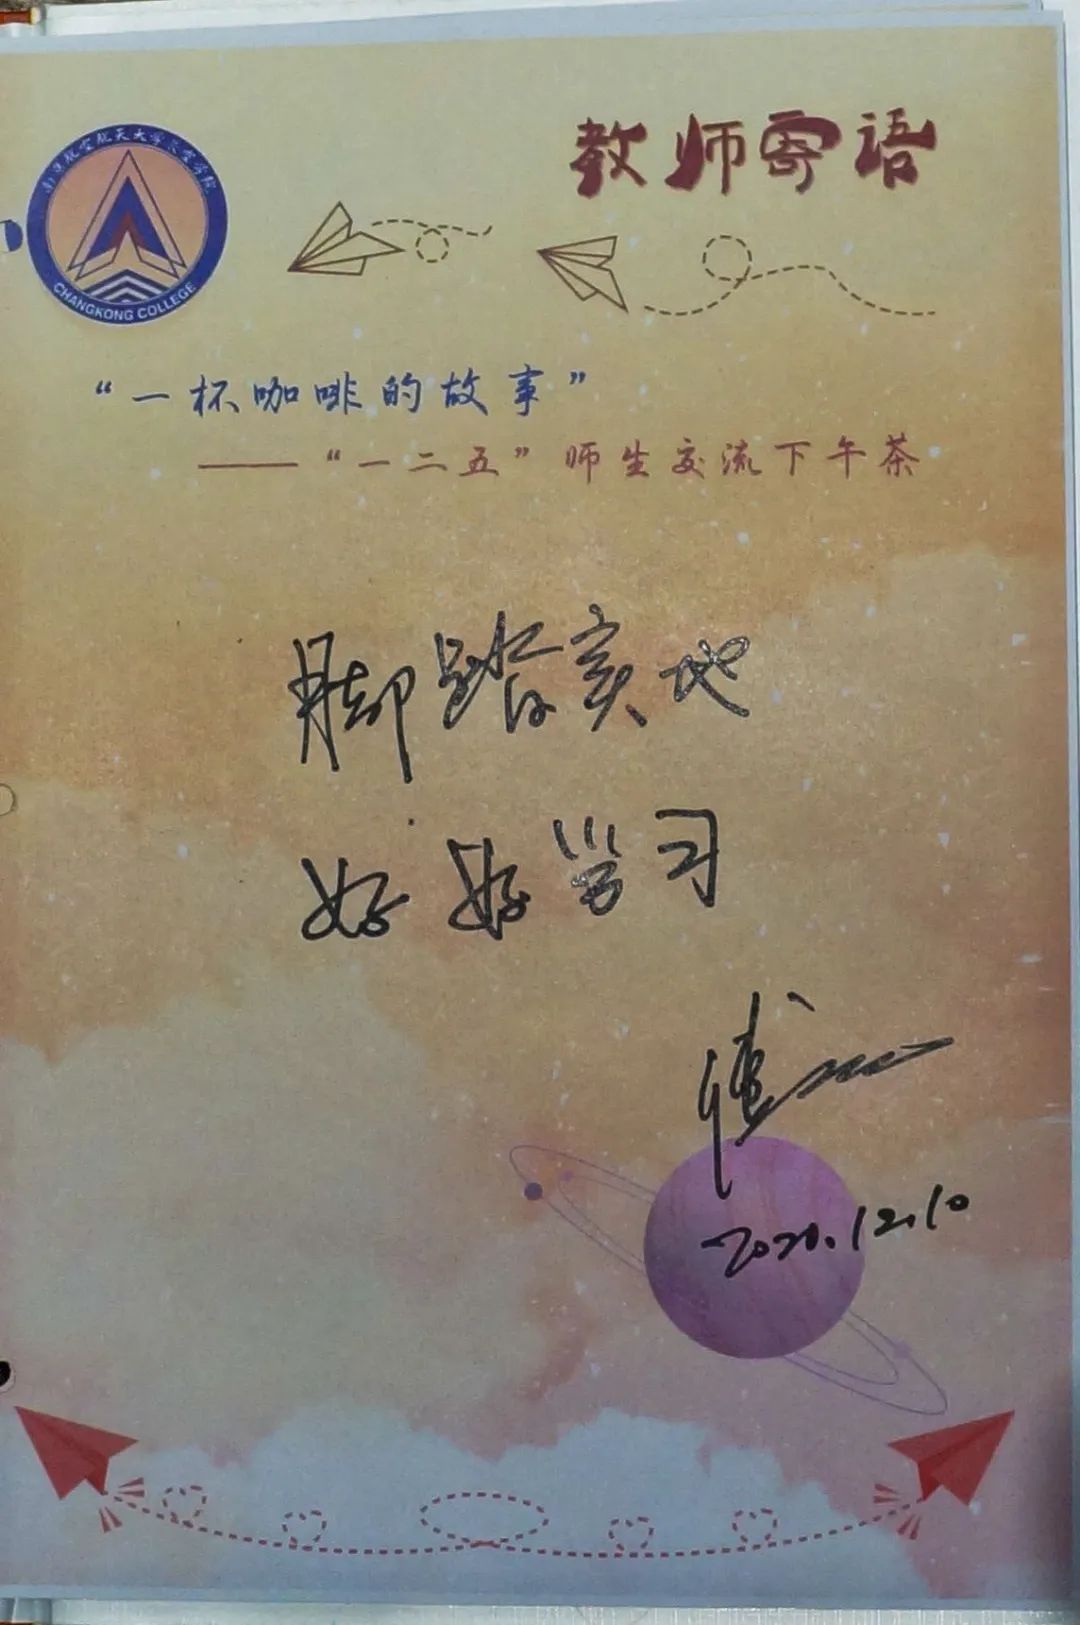 南京航空航天大学长空学院
CHANGKONG COLLEGE
教师寄语
“一杯咖啡的故事”
——“一二五”师生交流下午茶
脚踏实地
好好学习
2020.12.10